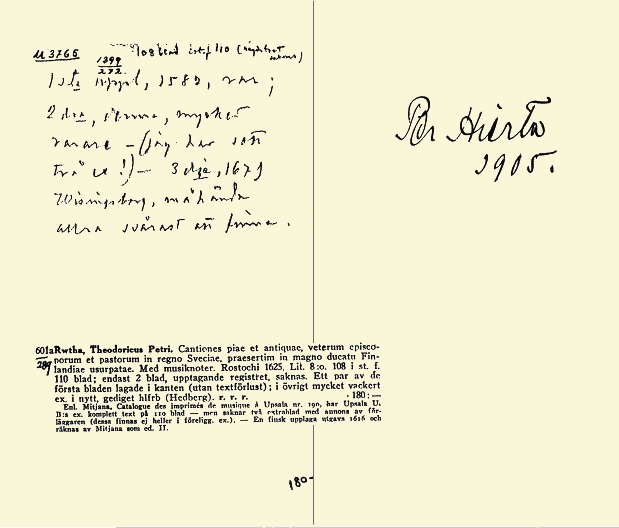 U 3766
1899
272
108 blad istf 110 (registret saknas)
1sta Uppl, 1582, rar;
2dra, denna, mycket
rarare – (jag har sett
två ex!) – 3dje, 1679
Wisingsborg, måhända
allra svårast att finna.
Per Hierta
1905.
601a Rwtha, Theodoricus Petri. Cantiones piae et antiquae, veterum episco-
289
porum et pastorum in regno Sveciae, praesertim in magno ducatu Fin-
landiae usurpatae. Med musiknoter. Rostochi 1625. Lit. 8:o. 108 i st. f.
110 blad; endast 2 blad, upptagande registret, saknas. Ett par av de
första bladen lagade i kanten (utan textförlust); i övrigt mycket vackert
ex. i nytt, gediget hlfrb (Hedberg). r. r. r. 180: —
Enl. Mitjana, Catalogue des imprimés de musique à Upsala nr. 190, har Upsala U.
B:s ex. komplett text på 110 blad — men saknar två extrablad med annons av för-
läggaren (dessa finnas ej heller i föreligg. ex.). — En finsk upplaga utgavs 1616 och
räknas av Mitjana som ed. II.
180-